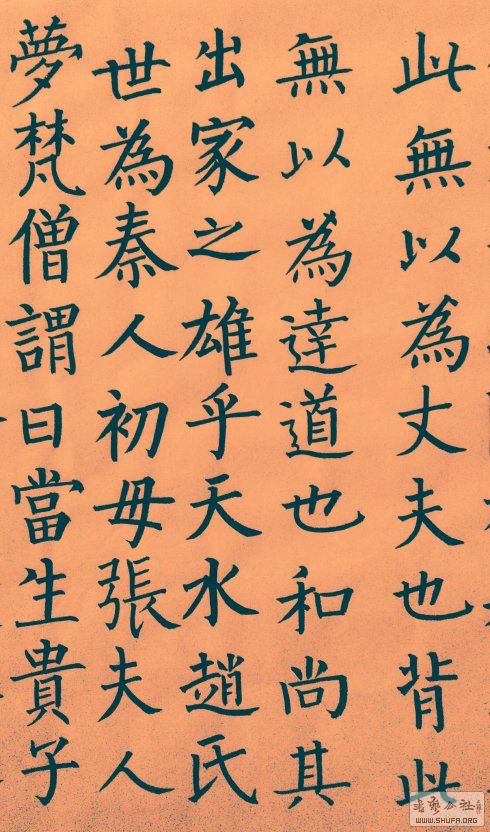 此無以為丈夫也背此
無以為達道也和尚其
出家之雄乎天水趙氏
世為秦人初母張夫人
夢梵僧謂曰當生貴子
WWW.SHUFA.ORG